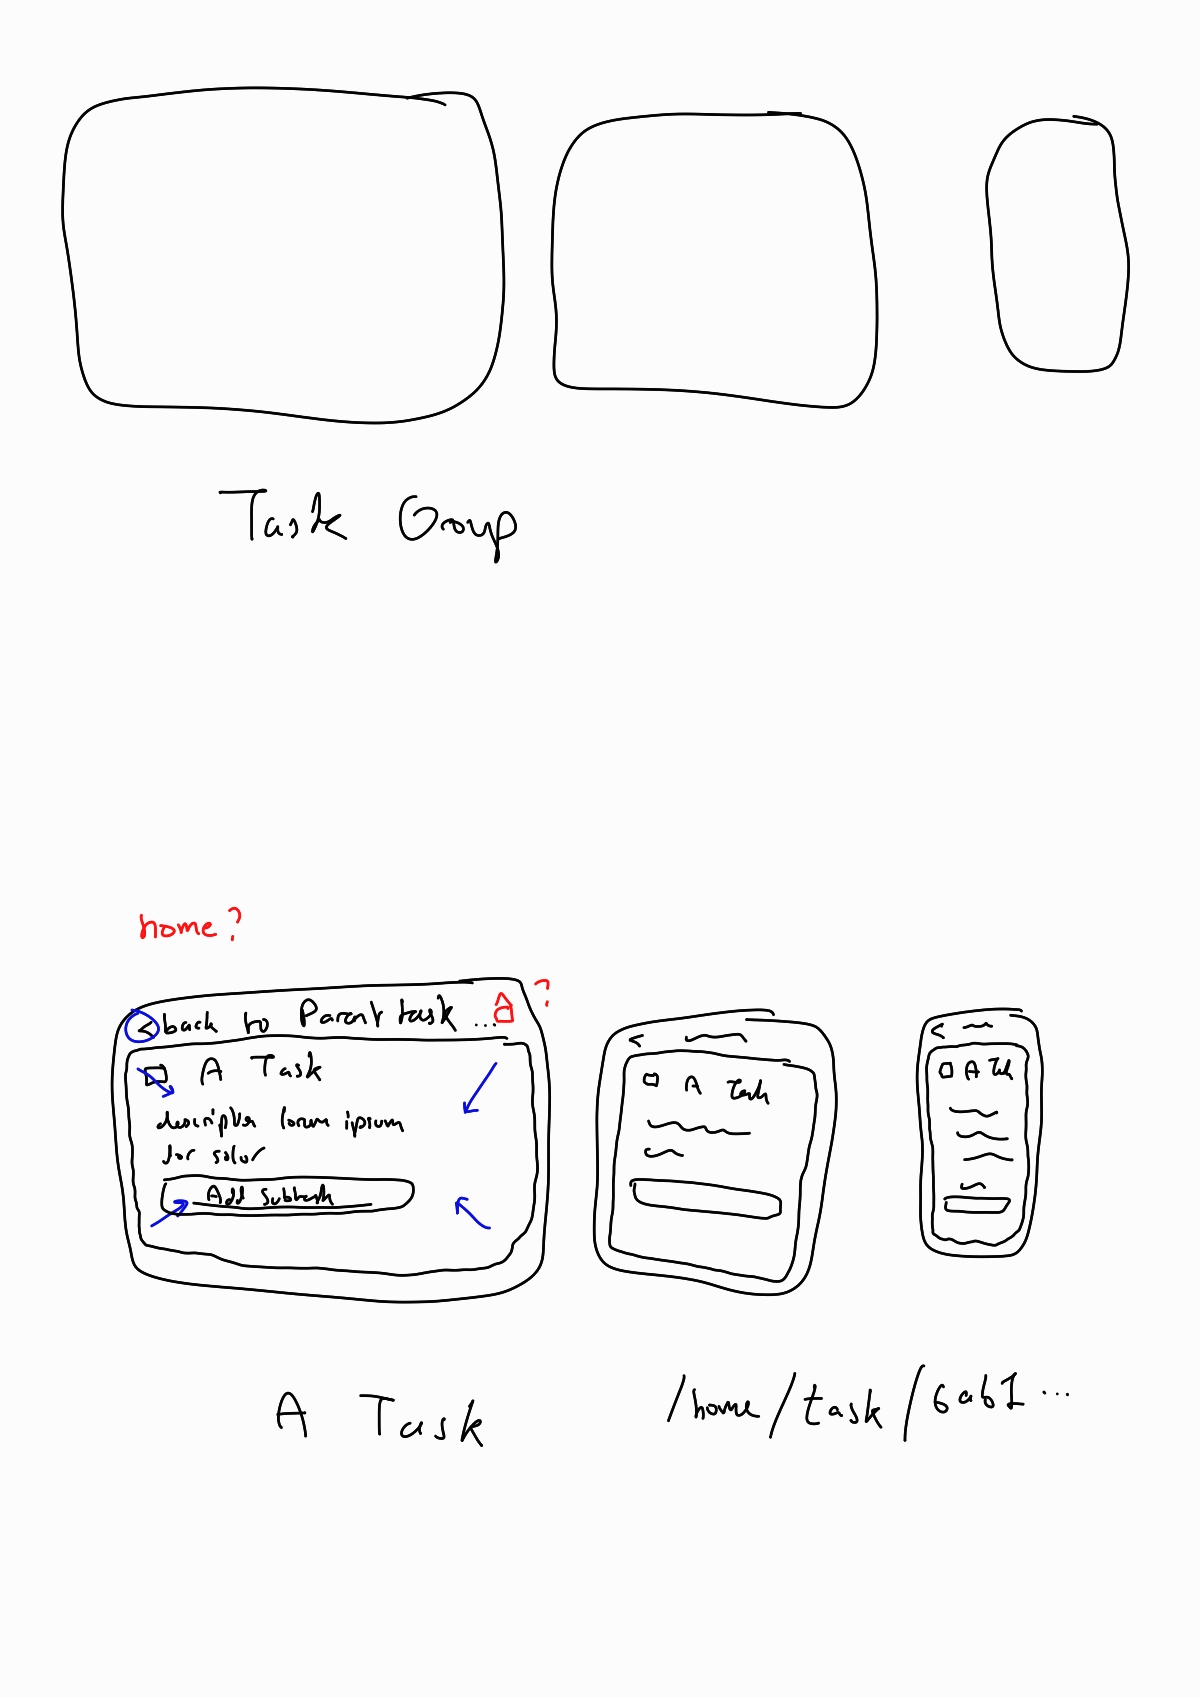 Task Group
home?
?
< back to Parent task ...
A Task
lorem ipsum
dor solor
Add Subtask
<
A Task
<
A Task
/home/task/6ab1...